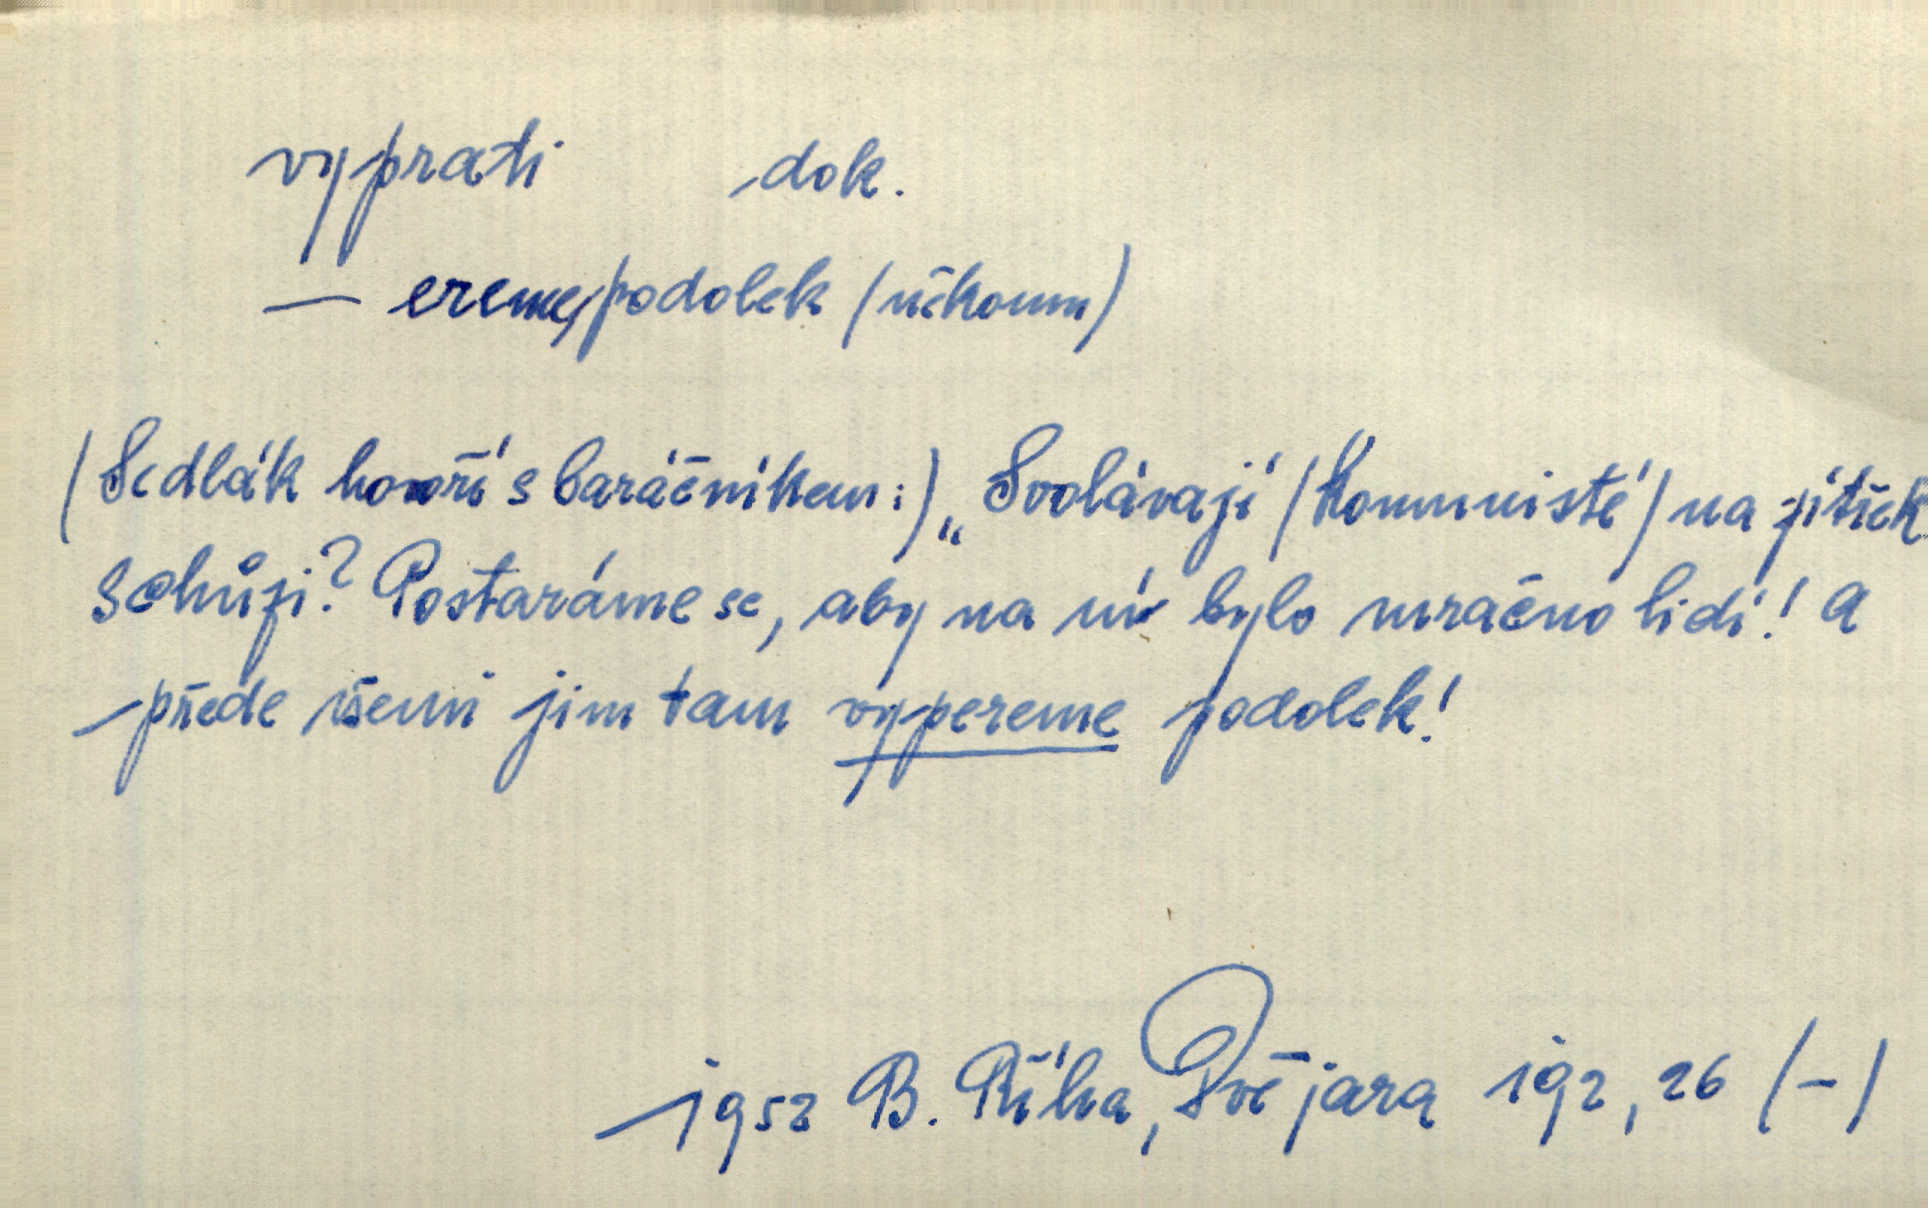 vyprati dok.
— ereme, podolek (někomu)
(Sedlák hovoří s baráčníkem:) „Svolávají (Komunisté) na zítřek
schůzi? Postaráme se, aby na ní bylo mračno lidí! A
přede všemi jim tam vypereme podolek!
1952 B. Říha, Dvě jara 192, 26 (–)